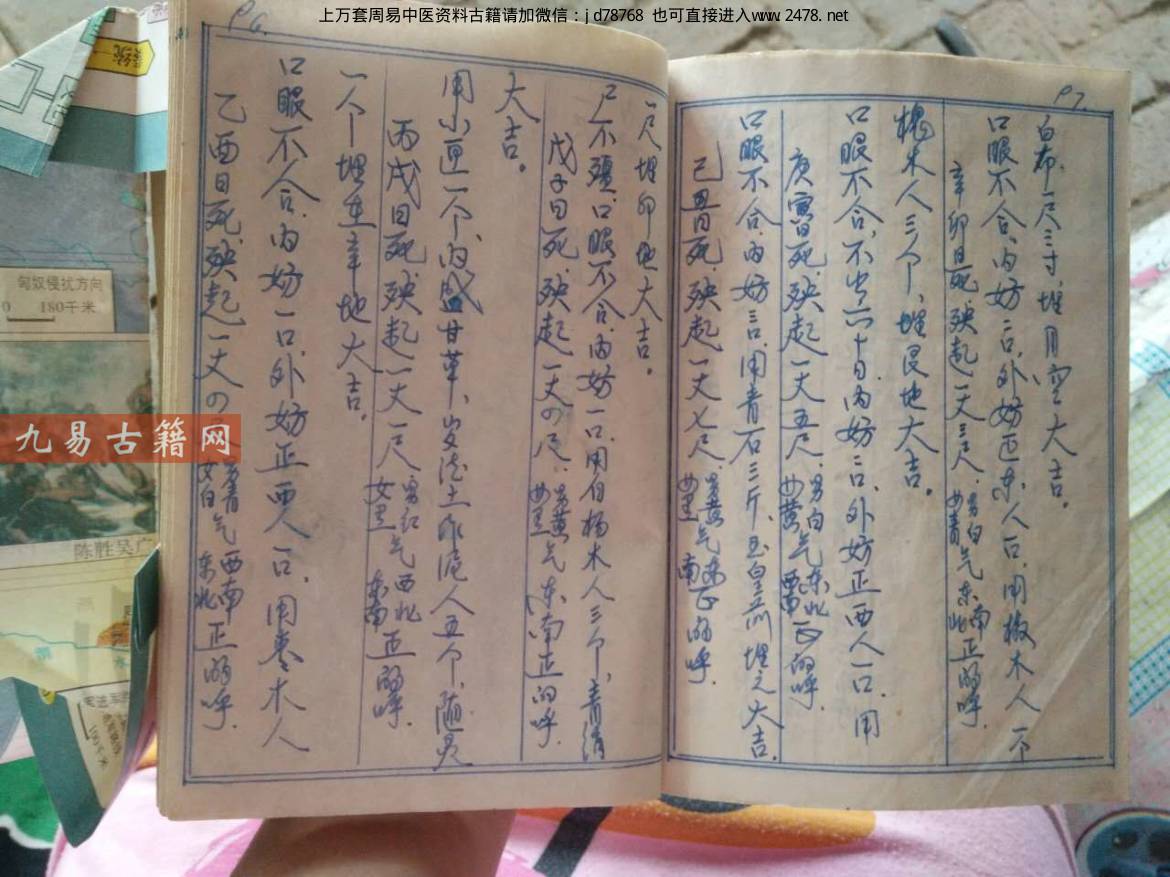 上万套周易中医资料古籍请加微信：jd78768 也可直接进入www.2478.net
P6
乙酉日死,殃起一丈の 男青女白气西南东北正的呼.
口眼不合,内妨一口,外妨正西人一口,用枣木人
一个埋在辛地大吉。
丙戌日死,殃起一丈一尺.男红女黑气西北东南正的呼.
用小匣一个,内盛甘草、岁德土作泥人五个,随灵
大吉。
戊子日死,殃起一丈の尺.男黄女黑气东南正的呼.
尸不殭,口眼不合,内妨一口.用白杨木人三个,青绢
一尺埋卯地大吉。
P7
己丑日死,殃起一丈七尺.男黄女黑气东南正的呼.
口眼不合,内妨三口,用青石三斤,玉皇前埋之大吉.
庚寅日死,殃起一丈五尺.男白女黄气东北西南正的呼.
口眼不合,不出六十日内妨二口,外妨正西人一口.用
槐木人三个,埋艮地大吉。
辛卯日死,殃起一丈三尺.男白女青气东南东北正的呼.
口眼不合,内妨二口,外妨正东人一口,用椒木人一个
白布一尺三寸,埋月空大吉。
九易古籍网
匈奴侵扰方向
0 180千米
陈胜吴广